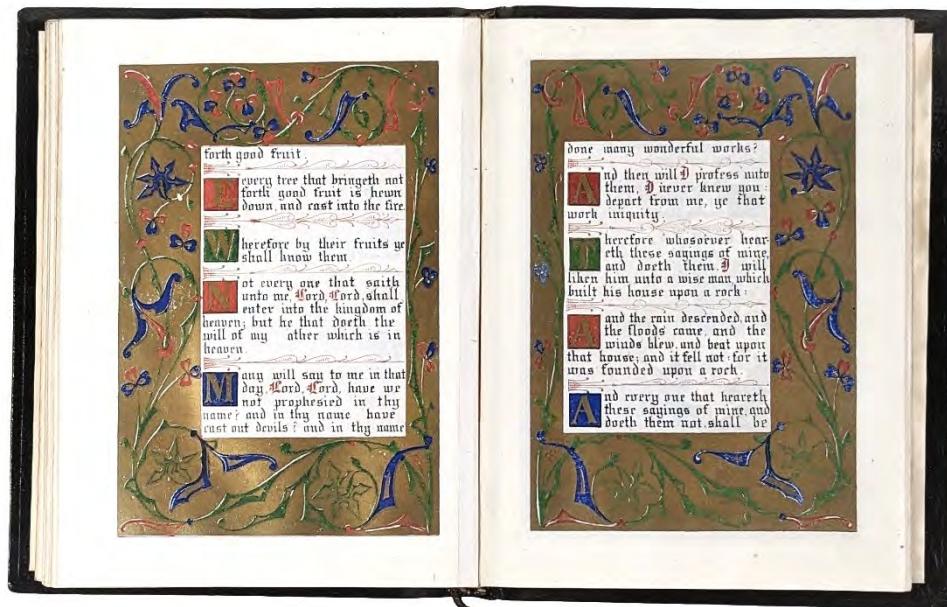 forth good fruit.
E every tree that bringeth not
forth good fruit is hewn
down, and cast into the fire.
Wherefore by their fruits ye
shall know them.
Not every one that saith
unto me, Lord, Lord, shall
enter into the kingdom of
heaven; but he that doeth the
will of my ather which is in
heaven.
Many will say to me in that
day, Lord, Lord, have we
not prophesied in thy
name? and in thy name have
cast out devils? and in thy name
done many wonderful works?
And then will I profess unto
them, I never knew you:
depart from me, ye that
work iniquity.
Therefore whosoever hear-
eth these sayings of mine,
and doeth them, I will
liken him unto a wise man, which
built his house upon a rock:
A and the rain descended, and
the floods came, and the
winds blew, and beat upon
that house; and it fell not: for it
was founded upon a rock.
And every one that heareth
these sayings of mine, and
doeth them not, shall be